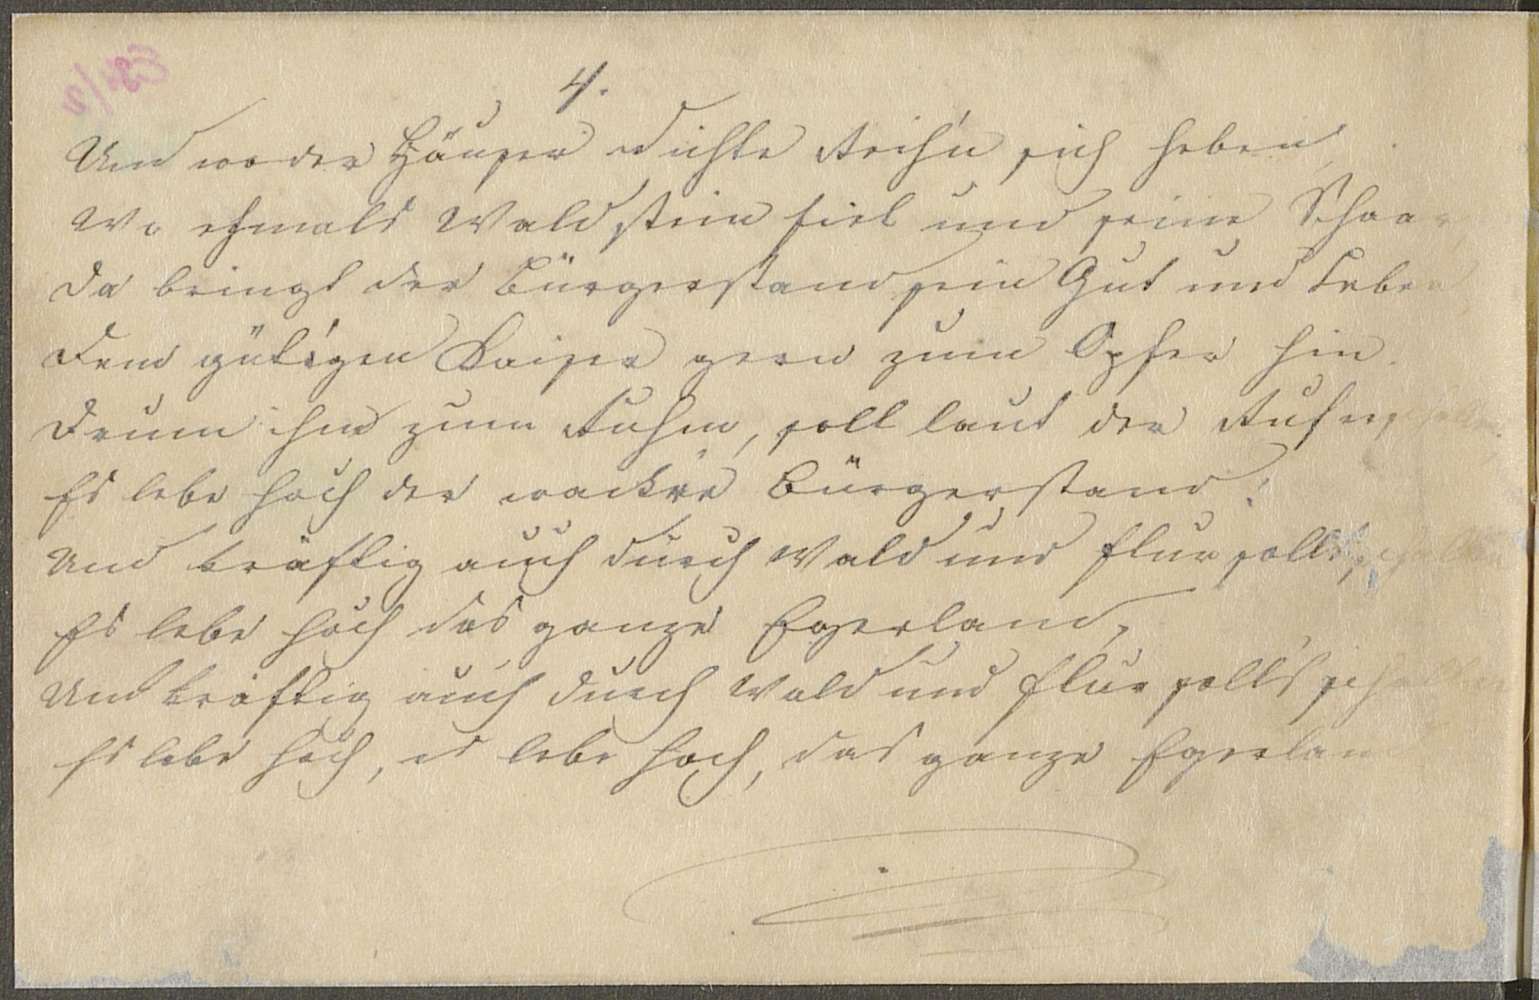 4.
Und wo der Häuser dichte Reih'n sich heben,
Wo ehmals Waldstein fiel und seine Schaar,
Da bringt der Bürgerstand sein Gut und Leben
Dem gütigen Kaiser gern zum Opfer hin.
Drum ihm zum Ruhm, soll laut der Ruf erschallen.
Es lebe hoch der wack're Bürgerstand!
Und kräftig auch durch Wald und Flur soll's schallen
Es lebe hoch das ganze Egerland,
Und kräftig auch durch Wald und Flur soll's schallen
Es lebe hoch, es lebe hoch, das ganze Egerland